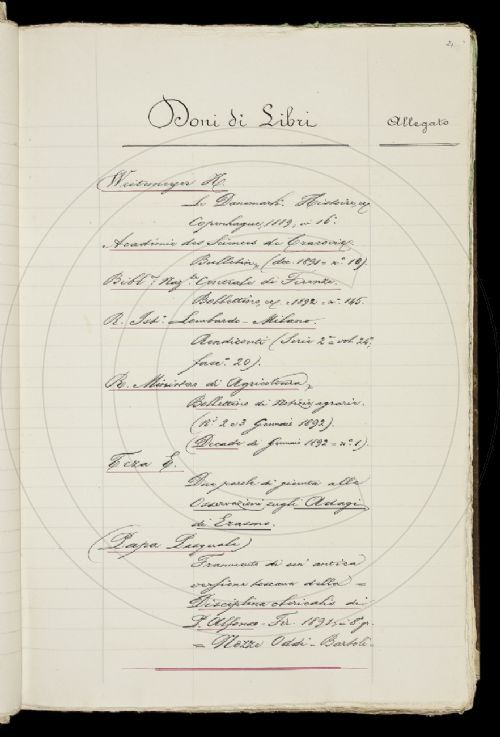 21
Doni di Libri
Allegato
(Weitemeyer H.
Le Danemark. Histoire, ec.
Copenhague, 1889, in 16°.
Académie des Sciences de Cracovie.
Bulletin, (déc. 1891 = n° 10).
Bibl.ª Naz.le Centrale di Firenze.
Bollettino, ec. = 1892 = n° 145.
R. Ist.º Lombardo - Milano.
Rendiconti (Serie 2ª = vol. 24°,
fasc.º 20).
R. Ministero di Agricoltura,
Bollettino di Notizie agrarie.
(N.i 2 e 3 Gennaio 1892).
(Decade di Gennaio 1892 = n° 1).
Teza E.
Due parole di giunta alle
Osservazioni sugli Adagi
di Erasmo.
(Papa Pasquale)
Frammento di un' antica
versione toscana della =
Disciplina clericalis di
P. Alfonso - Fir. 1891, in 8° gr.
= Nozze Oddi - Bartoli -